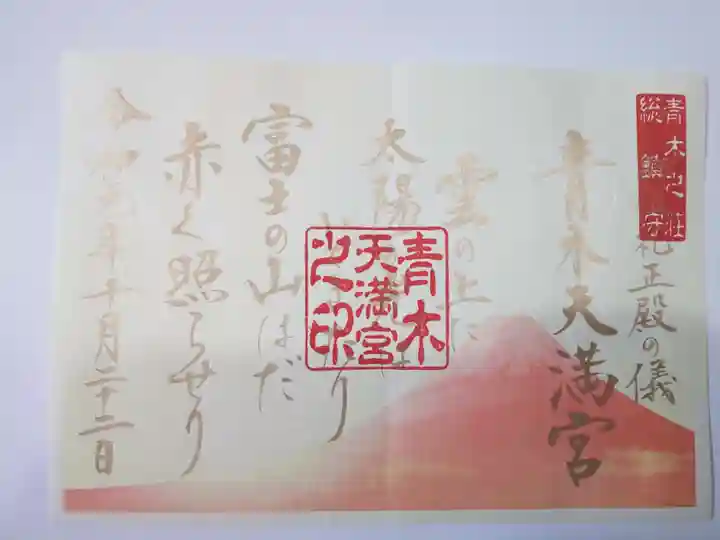 青木之荘
総鎮守
礼正殿の儀
青木天満宮
雲の上に
太陽は
り
富士の山はだ
赤く照らせり
令和元年十月二十二日
青木
天満宮
之印